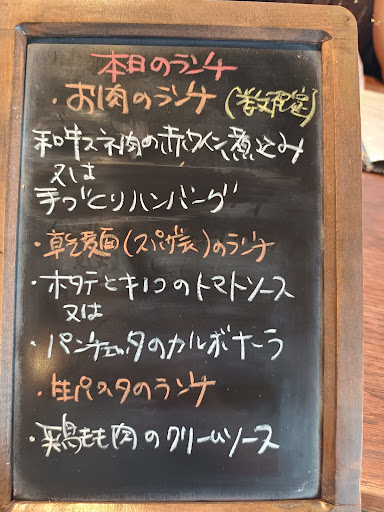 本日のランチ
・お肉のランチ (数量限定)
和牛スネ肉の赤ワイン煮込み
又は
手づくりハンバーグ
・乾麺(スパゲティ)のランチ
・ホタテとキノコのトマトソース
又は
・パンチェッタのカルボナーラ
・生パスタのランチ
・鶏もも肉のクリームソース